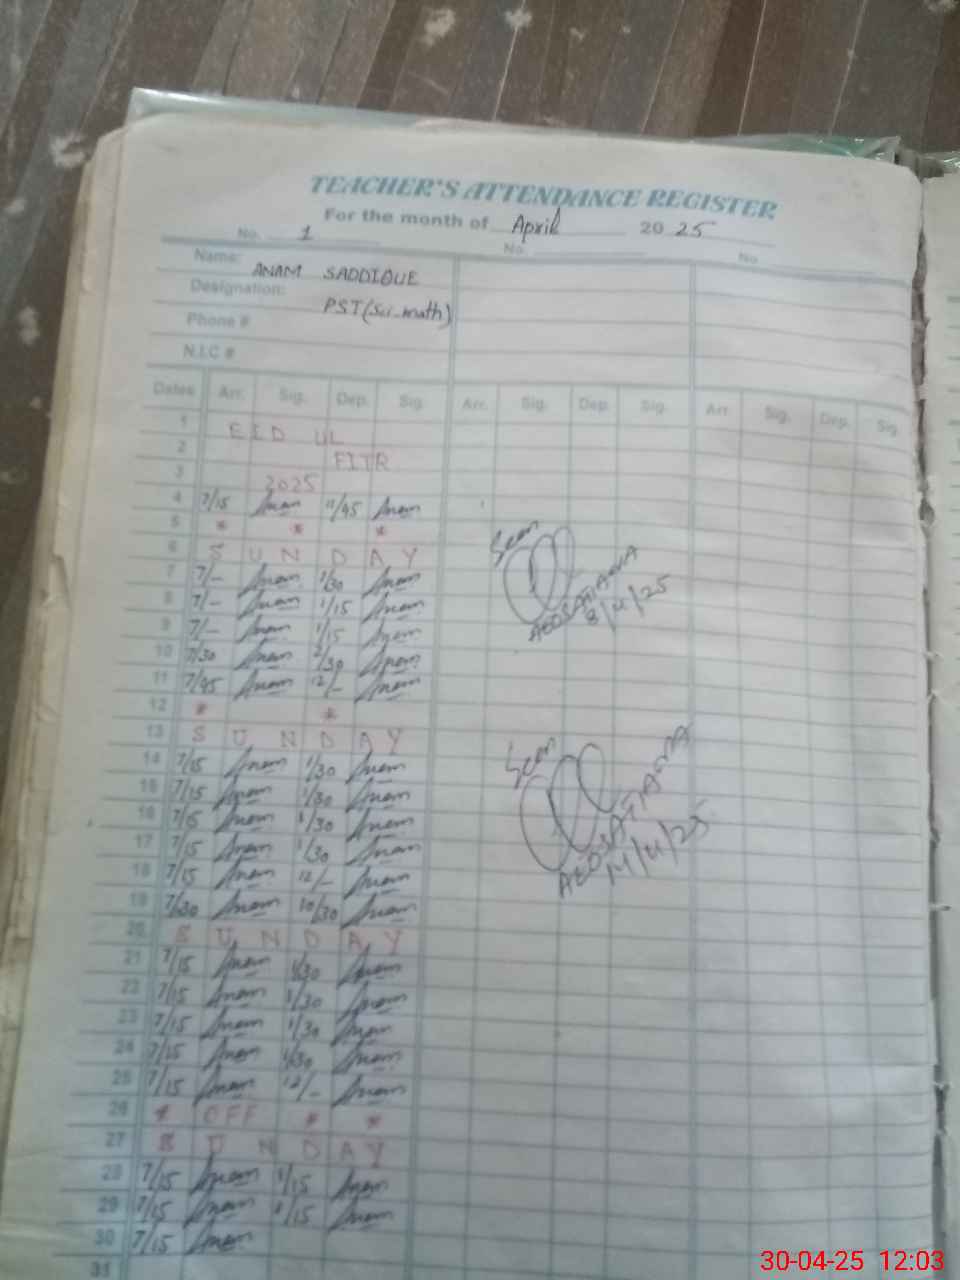 TEACHER'S ATTENDANCE REGISTER
For the month of April 2025
No. 1 No. No
Name: ANAM SADDIQUE
Designation: PST(Sci-math)
Phone #
N.I.C #
Dates Arr. Sig. Dep. Sig. Arr. Sig. Dep. Sig. Arr. Sig. Dep. Sig.
1 EID UL
2 FITR
3 2025
4 7/15 Anam 11/45 Anam
5 * * *
6 SUNDAY
7 7/- Anam 1/30 Anam
8 7/- Anam 1/15 Anam
9 7/- Anam 1/15 Anam
10 7/30 Anam 2/30 Anam
11 7/45 Anam 12/- Anam
12 * *
13 SUNDAY
14 7/15 Anam 1/30 Anam
15 7/15 Anam 1/30 Anam
16 7/15 Anam 1/30 Anam
17 7/15 Anam 1/30 Anam
18 7/15 Anam 12/- Anam
19 7/30 Anam 10/30 Anam
20 SUNDAY
21 7/15 Anam 1/30 Anam
22 7/15 Anam 1/30 Anam
23 7/15 Anam 1/30 Anam
24 7/15 Anam 1/30 Anam
25 7/15 Anam 12/- Anam
26 * OFF * *
27 SUNDAY
28 7/15 Anam 1/15 Anam
29 7/15 Anam 1/15 Anam
30 7/15 Anam
31
Seen
8/4/25
Seen
14/4/25
30-04-25 12:03